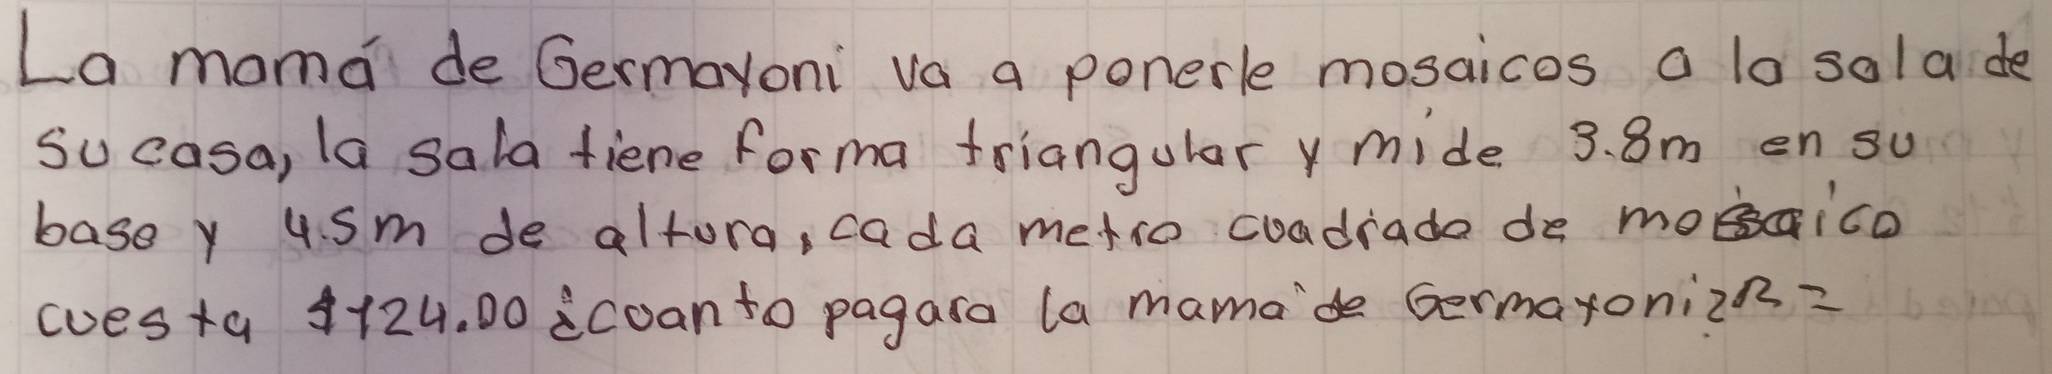 La mamá de Germayoni va a ponerle mosaicos a la sala de
su casa, la sala tiene forma triangular y mide 3.8m en su
base y 4.5m de altura, cada metro cuadrado de mosaico
cuesta $124.00 ¿cuanto pagara la mamá de Germayoni? R=